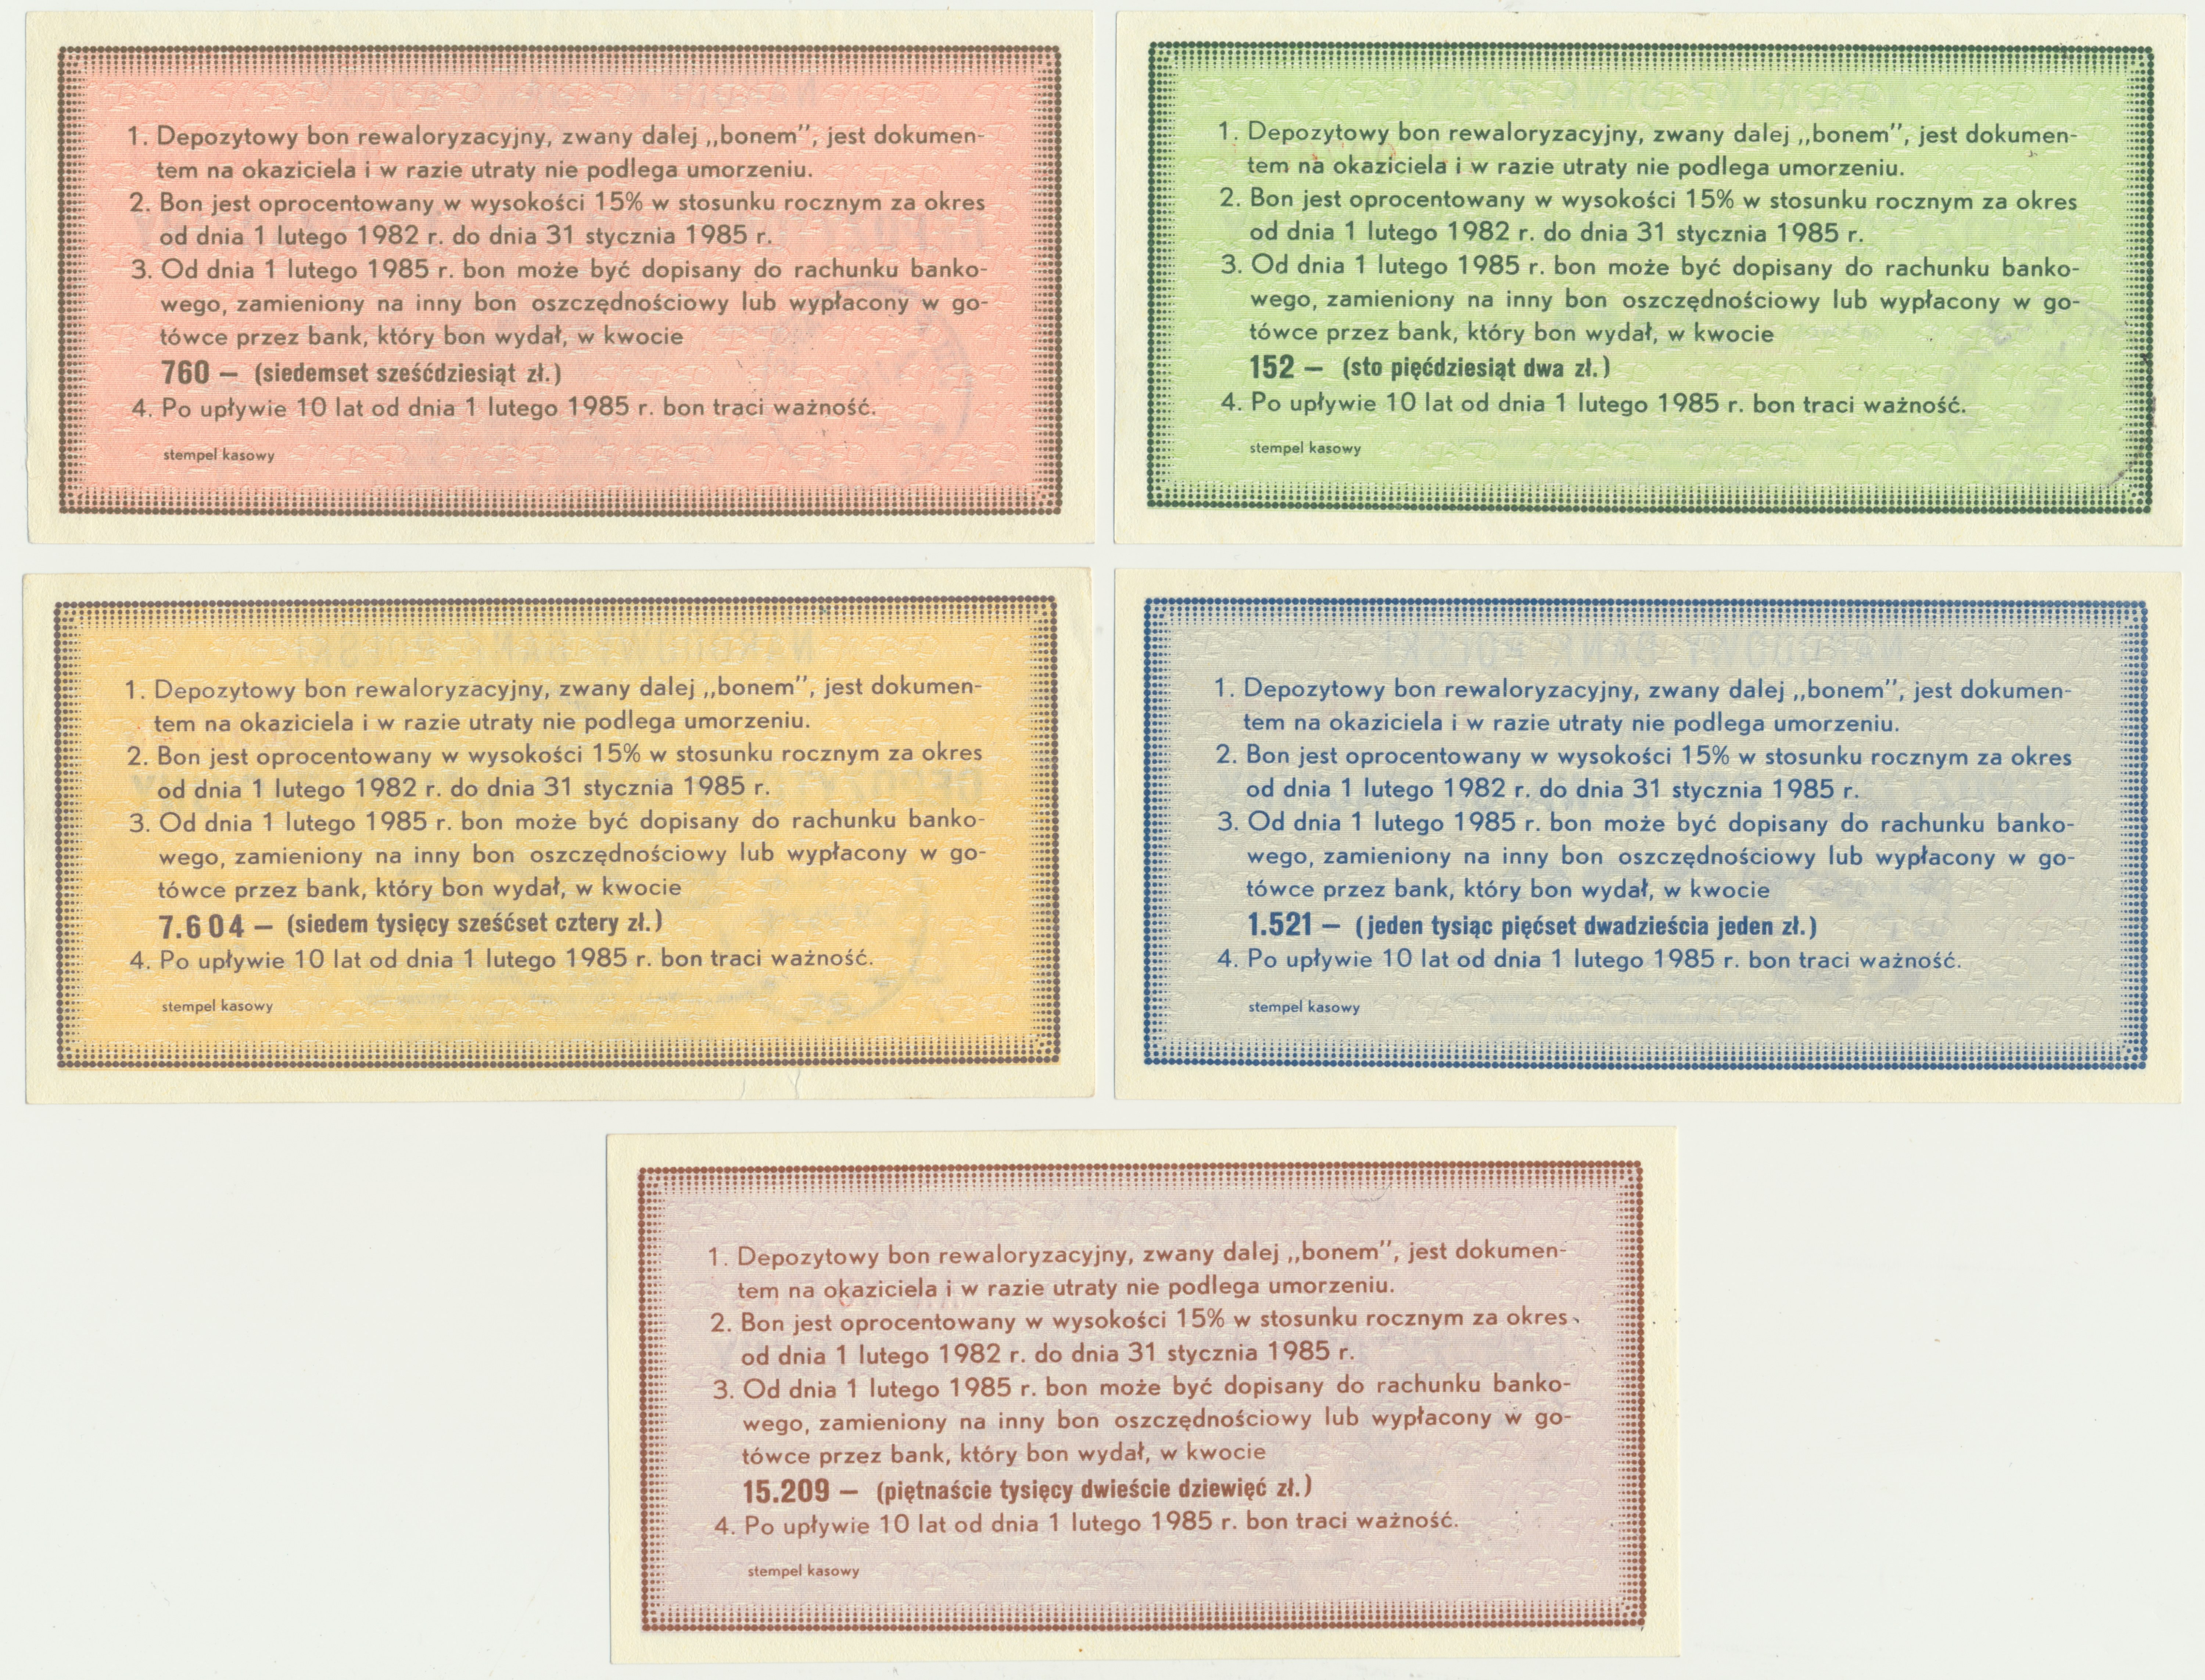 1. Depozytowy bon rewaloryzacyjny, zwany dalej „bonem”, jest dokumen-
tem na okaziciela i w razie utraty nie podlega umorzeniu.
2. Bon jest oprocentowany w wysokości 15% w stosunku rocznym za okres
od dnia 1 lutego 1982 r. do dnia 31 stycznia 1985 r.
3. Od dnia 1 lutego 1985 r. bon może być dopisany do rachunku banko-
wego, zamieniony na inny bon oszczędnościowy lub wypłacony w go-
tówce przez bank, który bon wydał, w kwocie
760 — (siedemset sześćdziesiąt zł.)
4. Po upływie 10 lat od dnia 1 lutego 1985 r. bon traci ważność.
stempel kasowy
1. Depozytowy bon rewaloryzacyjny, zwany dalej „bonem”, jest dokumen-
tem na okaziciela i w razie utraty nie podlega umorzeniu.
2. Bon jest oprocentowany w wysokości 15% w stosunku rocznym za okres
od dnia 1 lutego 1982 r. do dnia 31 stycznia 1985 r.
3. Od dnia 1 lutego 1985 r. bon może być dopisany do rachunku banko-
wego, zamieniony na inny bon oszczędnościowy lub wypłacony w go-
tówce przez bank, który bon wydał, w kwocie
152 — (sto pięćdziesiąt dwa zł.)
4. Po upływie 10 lat od dnia 1 lutego 1985 r. bon traci ważność.
stempel kasowy
1. Depozytowy bon rewaloryzacyjny, zwany dalej „bonem”, jest dokumen-
tem na okaziciela i w razie utraty nie podlega umorzeniu.
2. Bon jest oprocentowany w wysokości 15% w stosunku rocznym za okres
od dnia 1 lutego 1982 r. do dnia 31 stycznia 1985 r.
3. Od dnia 1 lutego 1985 r. bon może być dopisany do rachunku banko-
wego, zamieniony na inny bon oszczędnościowy lub wypłacony w go-
tówce przez bank, który bon wydał, w kwocie
7.604 — (siedem tysięcy sześćset cztery zł.)
4. Po upływie 10 lat od dnia 1 lutego 1985 r. bon traci ważność.
stempel kasowy
1. Depozytowy bon rewaloryzacyjny, zwany dalej „bonem”, jest dokumen-
tem na okaziciela i w razie utraty nie podlega umorzeniu.
2. Bon jest oprocentowany w wysokości 15% w stosunku rocznym za okres
od dnia 1 lutego 1982 r. do dnia 31 stycznia 1985 r.
3. Od dnia 1 lutego 1985 r. bon może być dopisany do rachunku banko-
wego, zamieniony na inny bon oszczędnościowy lub wypłacony w go-
tówce przez bank, który bon wydał, w kwocie
1.521 — (jeden tysiąc pięćset dwadzieścia jeden zł.)
4. Po upływie 10 lat od dnia 1 lutego 1985 r. bon traci ważność.
stempel kasowy
1. Depozytowy bon rewaloryzacyjny, zwany dalej „bonem”, jest dokumen-
tem na okaziciela i w razie utraty nie podlega umorzeniu.
2. Bon jest oprocentowany w wysokości 15% w stosunku rocznym za okres
od dnia 1 lutego 1982 r. do dnia 31 stycznia 1985 r.
3. Od dnia 1 lutego 1985 r. bon może być dopisany do rachunku banko-
wego, zamieniony na inny bon oszczędnościowy lub wypłacony w go-
tówce przez bank, który bon wydał, w kwocie
15.209 — (piętnaście tysięcy dwieście dziewięć zł.)
4. Po upływie 10 lat od dnia 1 lutego 1985 r. bon traci ważność.
stempel kasowy